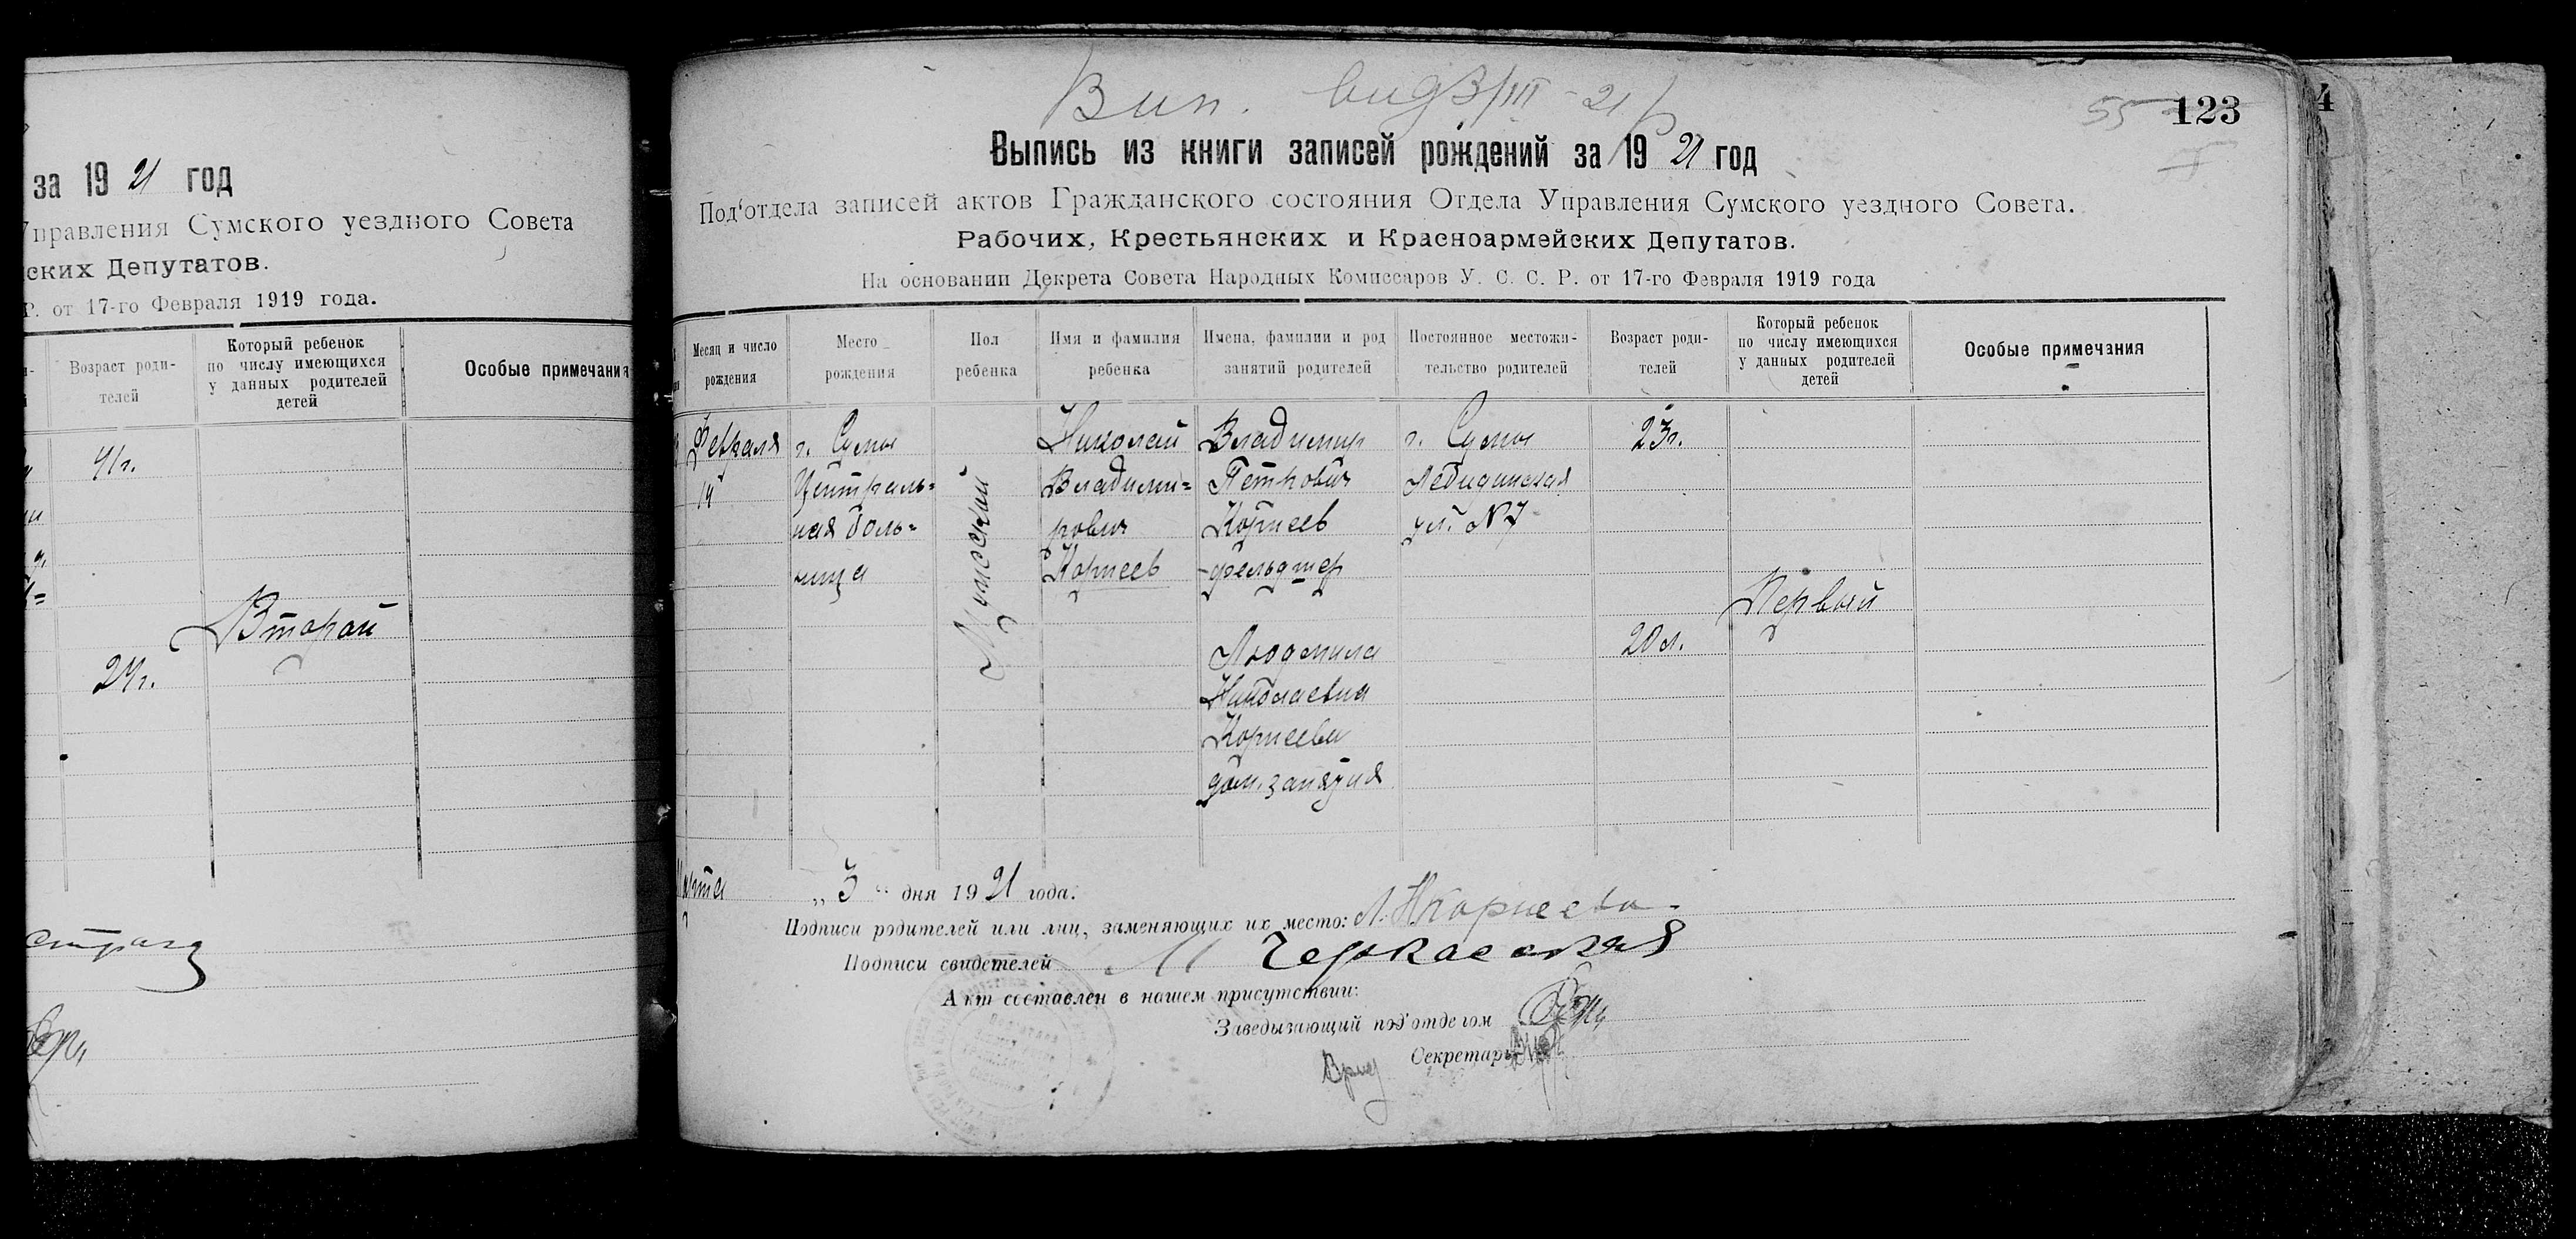 за 19 21 год
Управления Сумского уездного Совета
ских Депутатов.
Р. от 17-го Февраля 1919 года.
Возраст роди-
телей
Который ребенок
по числу имеющихся
у данных родителей
детей
Особые примечания
41г.
Второй
24г.
Вип. вид 3/III - 21 р
55
123
4
Выпись из книги записей рождений за 19 21 год
Под'отдела записей актов Гражданского состояния Отдела Управления Сумского уездного Совета.
Рабочих, Крестьянских и Красноармейских Депутатов.
На основании Декрета Совета Народных Комиссаров У. С. С. Р. от 17-го Февраля 1919 года
Месяц и число
рождения
Место
рождения
Пол
ребенка
Имя и фамилия
ребенка
Имена, фамилии и род
занятий родителей
Постоянное местожи-
тельство родителей
Возраст роди-
телей
Который ребенок
по числу имеющихся
у данных родителей
детей
Особые примечания
Февраля
14
г. Сумы
Централь=
ная боль=
ница
Мужской
Николай
Владими=
рович
Корнеев
Владимир
Петрович
Корнеев
фельдшер
Людмила
Николаевна
Корнеева
дом. занятия
г. Сумы
Лебединская
ул. №7
23г.
20 л.
Первый
Марта „ 3 “ дня 19 21 года.
Подписи родителей или лиц, заменяющих их место: Л. Н Корнеева
Подписи свидетелей М Черкасская
Акт составлен в нашем присутствии:
Заведывающий под'отделом
Секретарь